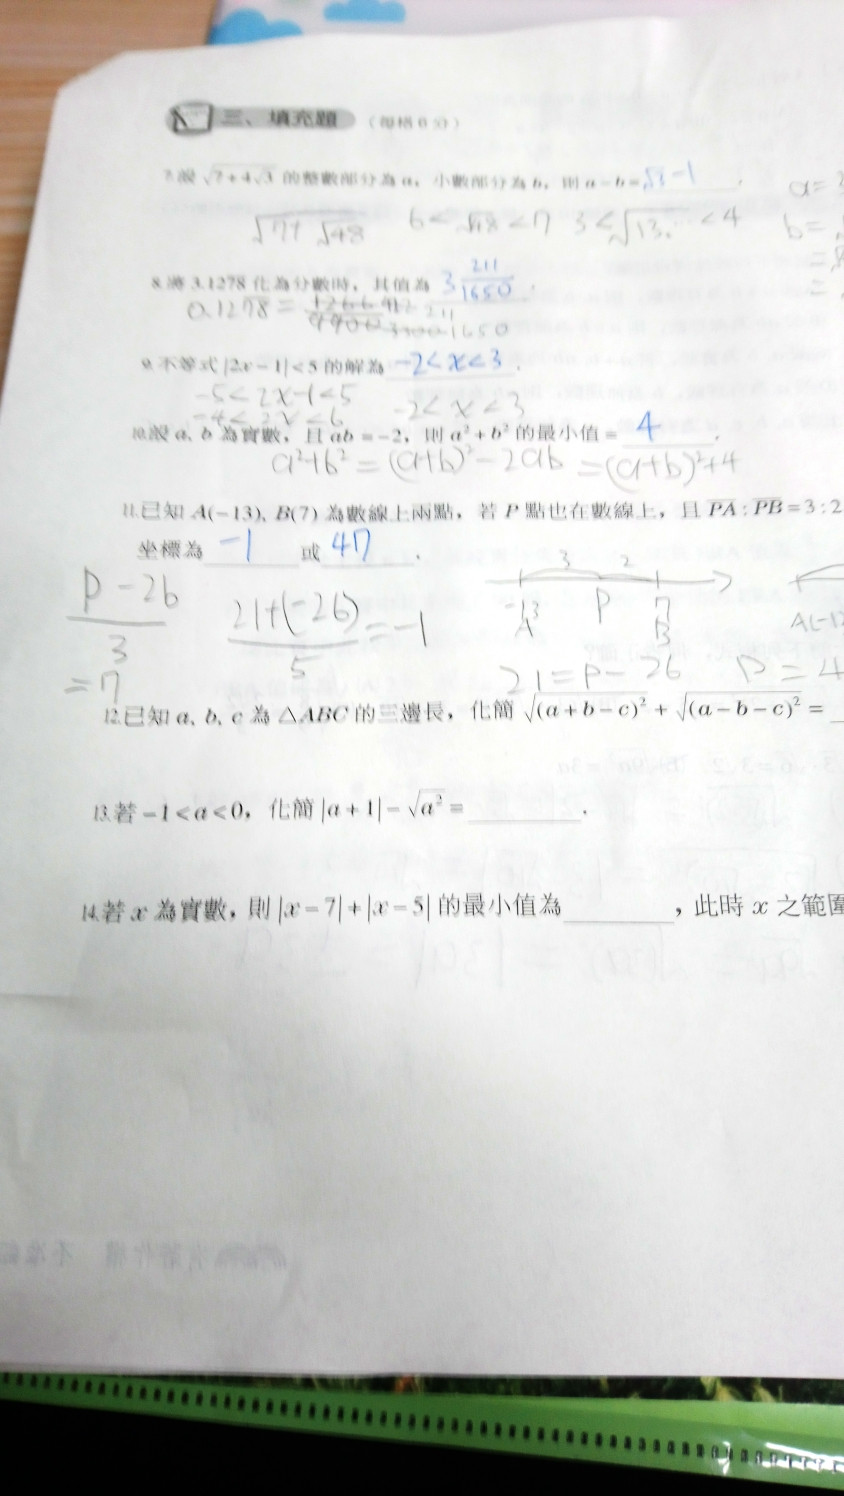 三、填充題 (每格6分)
7.設 √7+4√3 的整數部分為 a, 小數部分為 b, 則 a-b= √3-1 .
√7+√48 6<√48<7 3<√13.…<4 a=3
b=
8.將 3.1278 化為分數時, 其值為 3 211/1650 .
0.1278 = 211/1650
9.不等式 |2x-1|<5 的解為 -2<x<3 .
-5<2x-1<5
-4<2x<6 -2<x<3
10.設 a、b 為實數, 且 ab=-2, 則 a²+b² 的最小值= 4 .
a²+b² = (a+b)²-2ab =(a+b)²+4
11.已知 A(-13), B(7) 為數線上兩點, 若 P 點也在數線上, 且 PA:PB=3:2
坐標為 -1 或 47 .
P-26/3 =7
21+(-26)/5 =-1
3 2
-13 P 7
A B A(-13
21=P-26 P=4
12.已知 a、b、c 為 △ABC 的三邊長, 化簡 √(a+b-c)² + √(a-b-c)² =
13.若 -1<a<0, 化簡 |a+1|-√a² = .
14.若 x 為實數, 則 |x-7|+|x-5| 的最小值為 , 此時 x 之範圍